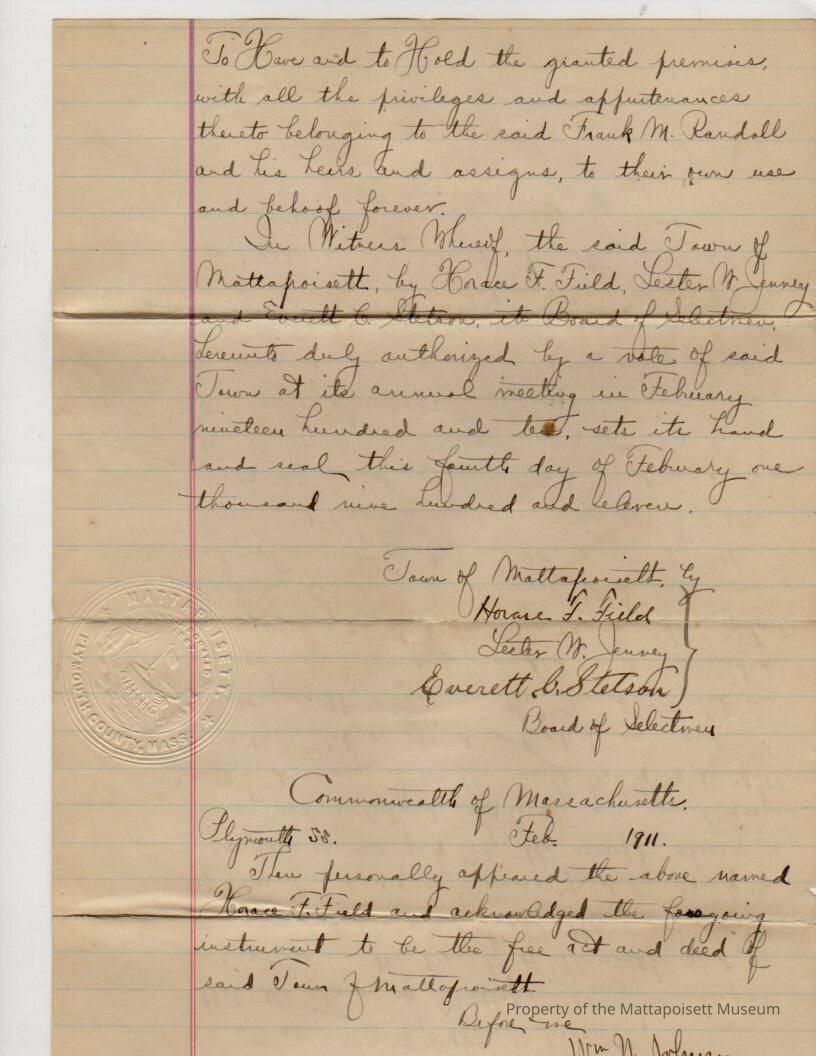 To Have and to Hold the granted premises,
with all the privileges and appurtenances
thereto belonging to the said Frank M. Randall
and his heirs and assigns, to their own use
and behoof forever.
In Witness Whereof, the said Town of
Mattapoisett, by Horace F. Field, Lester W. Jenney
and Everett C. Stetson, its Board of Selectmen,
hereunto duly authorized by a vote of said
Town at its annual meeting in February
nineteen hundred and ten, sets its hand
and seal this fourth day of February one
thousand nine hundred and eleven.
Town of Mattapoisett, by
Horace F. Field
Lester W. Jenney
Everett C. Stetson
Board of Selectmen
MATTAPOISETT.
INCORPORATED
PLYMOUTH COUNTY, MASS.
Commonwealth of Massachusetts.
Plymouth SS. Feb. 1911.
Then personally appeared the above named
Horace F. Field and acknowledged the foregoing
instrument to be the free act and deed of
said Town of Mattapoisett
Property of the Mattapoisett Museum
Before me
Wm N. Johnson